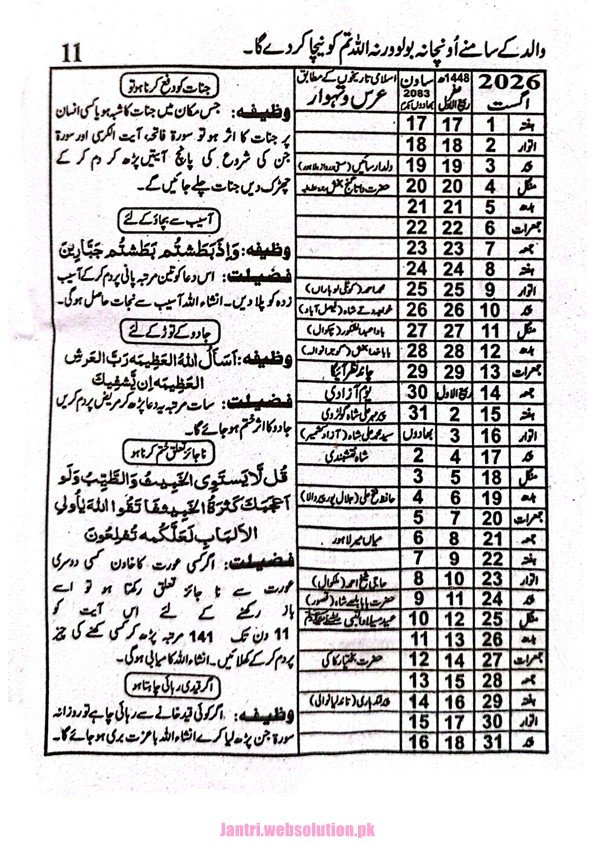 والد کے سامنے اُونچا نہ بولو ورنہ اللہ تم کو نیچا کر دے گا۔
11
2026
اگست
1448ھ
صفر
ربیع الاول
ساون
2083
بھادوں
اسلامی تاریخوں کے مطابق
عرس و تہوار
ہفتہ 1 17 17
اتوار 2 18 18
پیر 3 19 19
منگل 4 20 20
بدھ 5 21 21
جمعرات 6 22 22
جمعہ 7 23 23
ہفتہ 8 24 24
اتوار 9 25 25 محمد احمد
پیر 10 26 26 خواجہ (فیصل آباد)
منگل 11 27 27 (چکوال)
بدھ 12 28 28
جمعرات 13 29 29 چاند نظر آئیگا
جمعہ 14 ربیع الاول 30 یوم آزادی
ہفتہ 15 2 31 پیر مہر علی شاہ گولڑوی
اتوار 16 3 بھادوں سید محمد علی شاہ (آزاد کشمیر)
پیر 17 4 2 شاہ نقشبندی
منگل 18 5 3
بدھ 19 6 4 حافظ فتح علی (جلال پور پیروالا)
جمعرات 20 7 5
جمعہ 21 8 6 میاں میر لاہور
ہفتہ 22 9 7
اتوار 23 10 8 حاجی شیخ احمد
پیر 24 11 9 حضرت بابا بلھے شاہ (قصور)
منگل 25 12 10 عید میلاد النبی ﷺ
بدھ 26 13 11
جمعرات 27 14 12 حضرت بختیار کاکی
جمعہ 28 15 13
ہفتہ 29 16 14
اتوار 30 17 15
پیر 31 18 16
جنات کو دفع کرنا ہو تو
وظیفہ: جس مکان میں جنات کا شبہ ہو یا کسی انسان
پر جنات کا اثر ہو تو سورۃ فاتحہ، آیت الکرسی اور سورۃ
جن کی شروع کی پانچ آیتیں پڑھ کر دم کر کے
چھڑک دیں جنات چلے جائیں گے۔
آسیب سے بچاؤ کے لئے
وظیفہ: وَاِذَا بَطَشْتُم بَطَشْتُم جَبَّارِینَ
فضیلت: اس دعا کو تین مرتبہ پانی پر دم کر کے آسیب
زدہ کو پلا دیں۔ انشاء اللہ آسیب سے نجات حاصل ہوگی۔
جادو کے توڑ کے لئے
وظیفہ: اَسأَلُ اللہَ العَظِیمَ رَبَّ العَرشِ
العَظِیمِ اِن یَّشفِیکَ
فضیلت: سات مرتبہ یہ دعا پڑھ کر مریض پر دم کریں
جادو کا اثر ختم ہو جائے گا۔
ناجائز تعلق ختم کرنا ہو
قُل لَّا یَستَوِی الخَبِیثُ وَالطَّیِّبُ وَلَو
اَعجَبَکَ کَثرَۃُ الخَبِیثِ فَاتَّقُوا اللہَ یٰاُولِی
الاَلبَابِ لَعَلَّکُم تُفلِحُونَ
فضیلت: اگر کسی عورت کا خاون کسی دوسری
عورت سے نا جائز تعلق رکھتا ہو تو اسے
باز رکھنے کے لئے اس آیت کو
11 دن تک 141 مرتبہ پڑھ کر کسی کھنے کی چیز
پر دم کر کے کھلائیں۔ انشاء اللہ کامیابی ہو گی۔
اگر قیدی رہائی چاہتا ہو
وظیفہ: اگر کوئی قید خانے سے رہائی چاہے تو روزانہ
سورۃ جن پڑھ لیا کرے انشاء اللہ باعزت بری ہو جائے گا۔
Jantri.websolution.pk